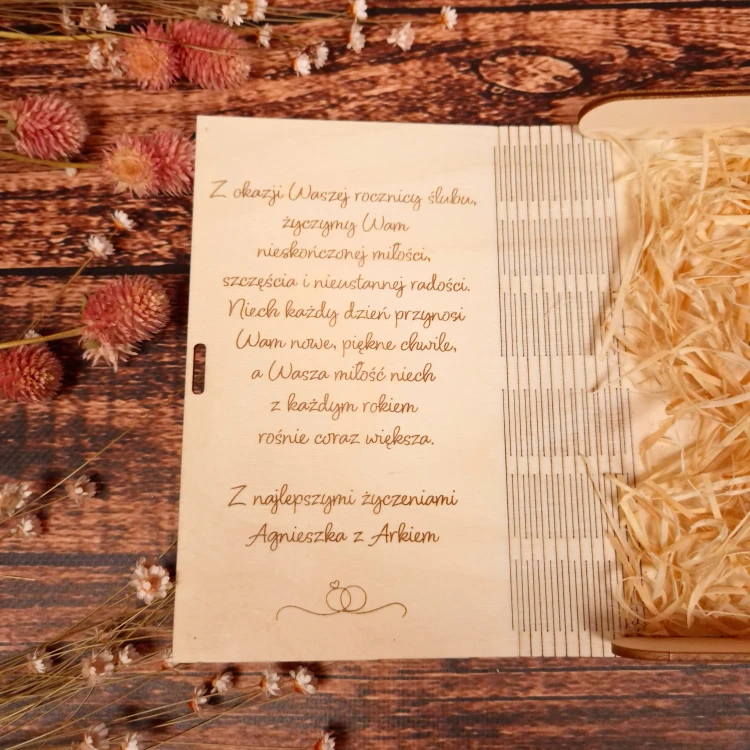 Z okazji Waszej rocznicy ślubu,
życzymy Wam
nieskończonej miłości,
szczęścia i nieustannej radości.
Niech każdy dzień przynosi
Wam nowe, piękne chwile,
a Wasza miłość niech
z każdym rokiem
rośnie coraz większa.
Z najlepszymi życzeniami
Agnieszka z Arkiem